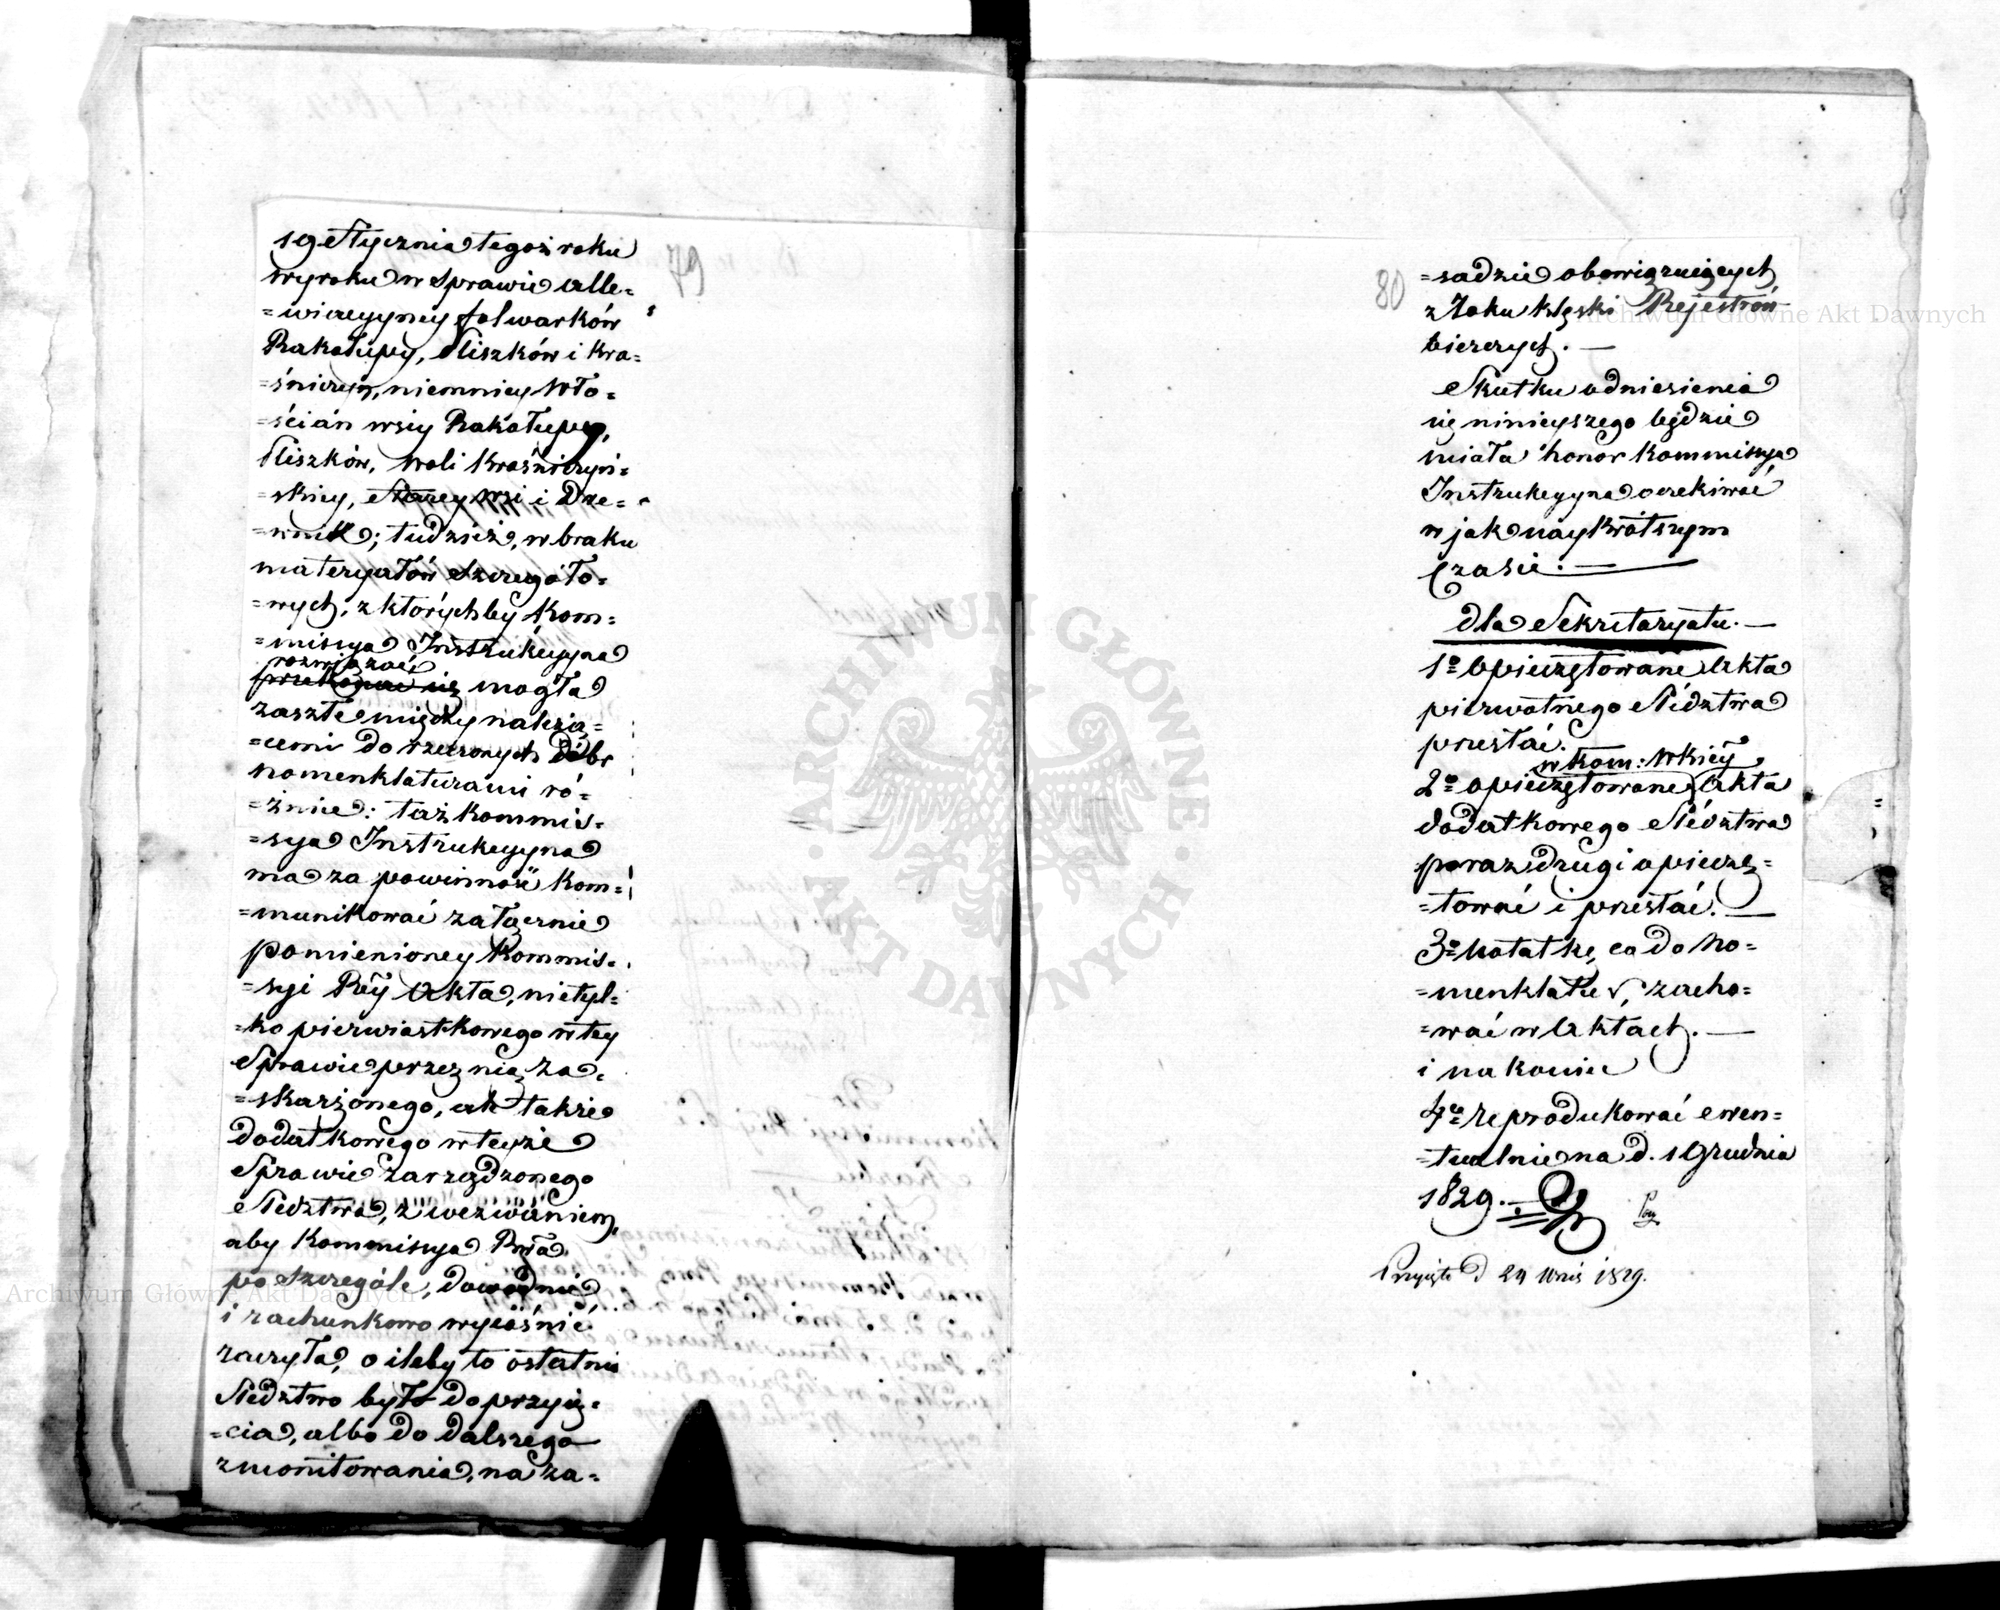 79
19 Stycznia tegoż roku
wyroku w Sprawie alle=
=wiacyyney folwarków
Rakołupy, Sliszków i Kra=
=śniczyn, niemniey Wło=
=ścián wsiy Rakołupy,
Sliszków, Woli Kraśniczyń=
=skiey, Starey wsi i Dre=
=wnik; tudzież, w braku
materyałów Szczegóło=
=wych, z którychby Kom=
=missya Instrukcyyna
rozwiązać
przekonać się mogła
zaszłe między należą=
=cemi do rzeczonych Dóbr
nomenklaturami ró=
=żnice: taż Kommis=
=sya Instrukcyyna
ma za powinność Kom=
=munikować załącznie
pomienioney Kommis=
=syi Rzy Akta, nietyl=
=ko pierwiastkowego w tey
Sprawie przez nią za=
=skarżonego, ale także
dodatkowego w teyże
Sprawie zarządzonego
Sledztwa, z wezwaniem,
aby Kommissya Rwa
po szczególe, dowodnie
i rachunkowo wyiaśnić
raczyła, o ileby to ostatnie
Sledztwo było do przyię=
=cia, albo do dalszego
zmonitowania, na za=
80
=sadzie obowiązuiących
z Roku klęski Rejestrów
bierczych. —
Skutku odniesienia
się ninieyszego będzie
miała honor Kommissya
Instrukcyyna oczekiwać
w jak naykrótszym
Czasie. —
dla Sekretaryatu. —
1o opieczętowane Akta
pierwotnego Sledztwa
przesłać.
w Kom: Wkiéy
2o opieczętowane Akta
dodatkowego Sledztwa
poraz drugi opieczę=
=tować i przesłać. —
3o Notatkę, co do No=
=menklatur, zacho=
=wać w Aktach. —
i nakoniec
4o reprodukować ewen=
=tualnie na d. 1 Grudnia
1829. —
Przyięto d 24 1829.
Archiwum Główne Akt Dawnych
Archiwum Główne Akt Dawnych
ARCHIWUM GŁÓWNE · AKT DAWNYCH ·